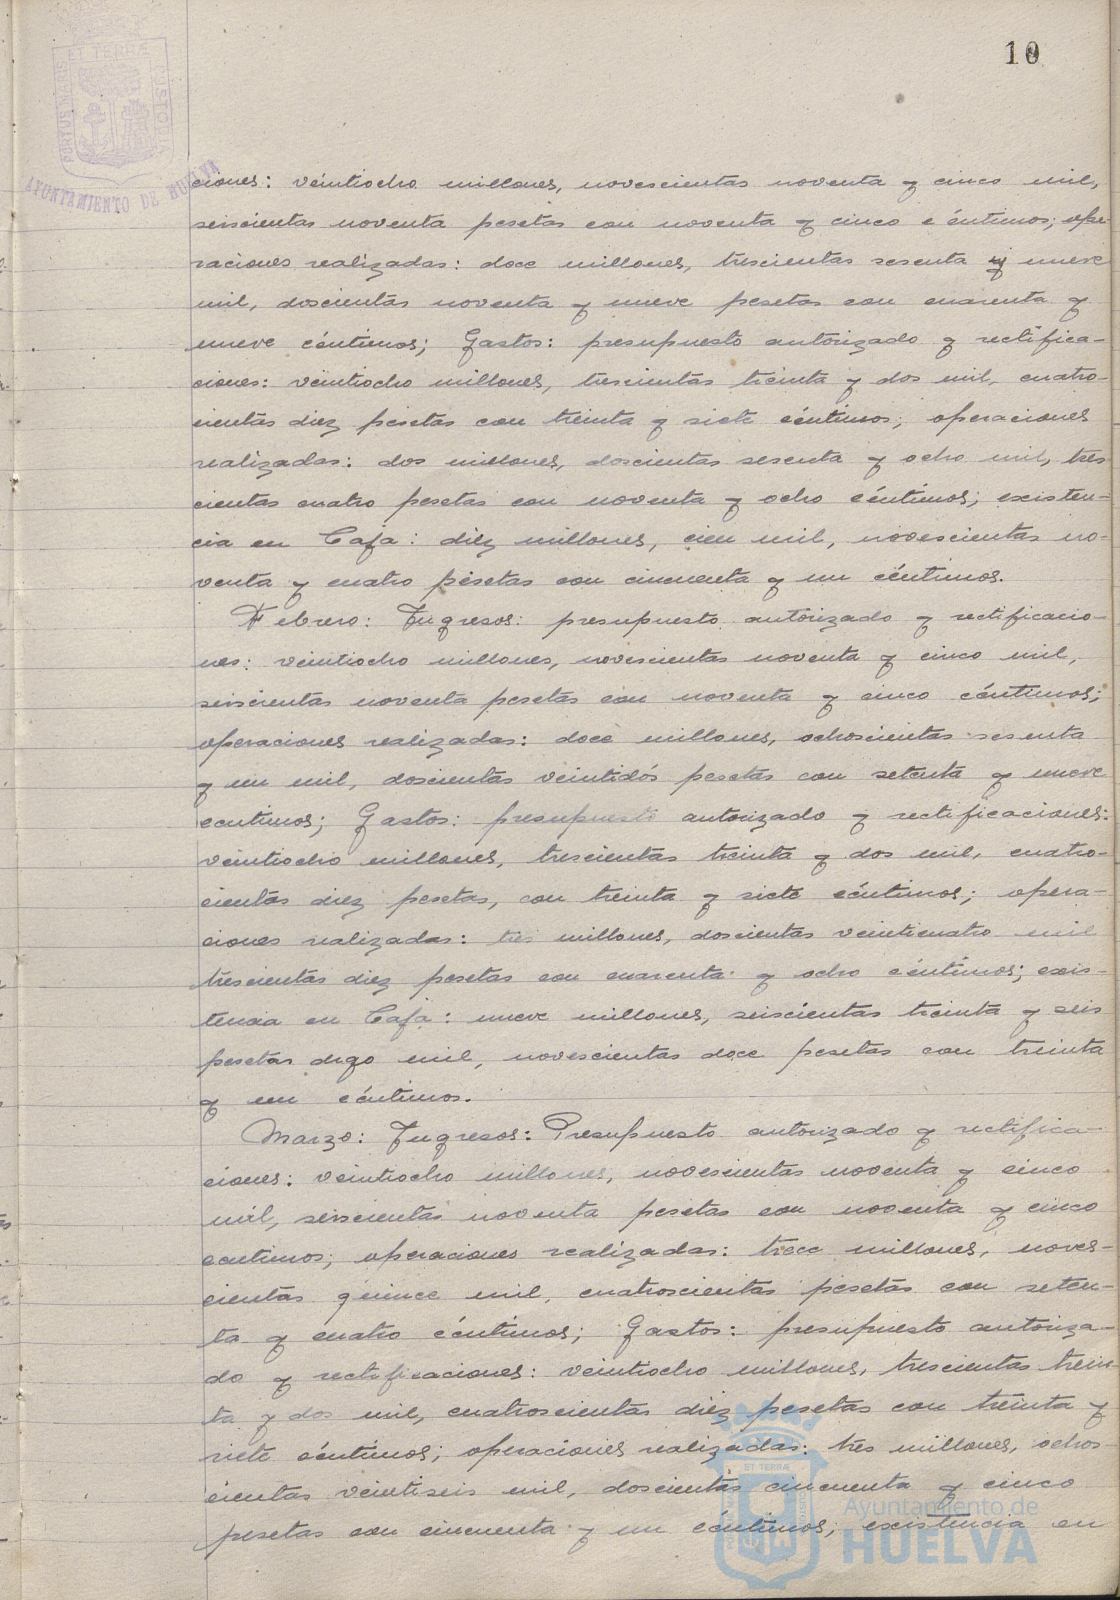 10
PORTUS MARIS ET TERRÆ CUSTODIA
AYUNTAMIENTO DE HUELVA
ciones: veintiocho millones, novescientas noventa y cinco mil,
seiscientas noventa pesetas con noventa y cinco céntimos; ope-
raciones realizadas: doce millones, trescientas sesenta y nueve
mil, doscientas noventa y nueve pesetas con cuarenta y
nueve céntimos; Gastos: presupuesto autorizado y rectifica-
ciones: veintiocho millones, trescientas treinta y dos mil, cuatro-
cientas diez pesetas con treinta y siete céntimos; operaciones
realizadas: dos millones, doscientas sesenta y ocho mil, tres
cientas cuatro pesetas con noventa y ocho céntimos; existen-
cia en Caja: diez millones, cien mil, novescientas no-
venta y cuatro pesetas con cincuenta y un céntimos.
Febrero: Ingresos: presupuesto autorizado y rectificacio-
nes: veintiocho millones, novescientas noventa y cinco mil,
seiscientas noventa pesetas con noventa y cinco céntimos;
operaciones realizadas: doce millones, ochoscientas sesenta
y un mil, doscientas veintidós pesetas con setenta y nueve
centimos; Gastos: presupuesto autorizado y rectificaciones:
veintiocho millones, trescientas treinta y dos mil, cuatro-
cientas diez pesetas, con treinta y siete céntimos; opera-
ciones realizadas: tres millones, doscientas veinticuatro mil
trescientas diez pesetas con cuarenta y ocho céntimos; exis-
tencia en Caja: nueve millones, seiscientas treinta y seis
pesetas digo mil, novescientas doce pesetas con treinta
y un céntimos.
Marzo: Ingresos: Presupuesto autorizado y rectifica-
ciones: veintiocho millones, novescientas noventa y cinco
mil, seiscientas noventa pesetas con noventa y cinco
centimos; operaciones realizadas: trece millones, noves-
cientas quince mil, cuatroscientas pesetas con seten-
ta y cuatro céntimos; Gastos: presupuesto autoriza-
do y rectificaciones: veintiocho millones, trescientas trein
ta y dos mil, cuatroscientas diez pesetas con treinta y
siete céntimos; operaciones realizadas: tres millones, ochos
cientas veintiseis mil, doscientas cincuenta y cinco
pesetas con cincuenta y un céntimos; existencia en
ET TERRÆ
Ayuntamiento de
HUELVA